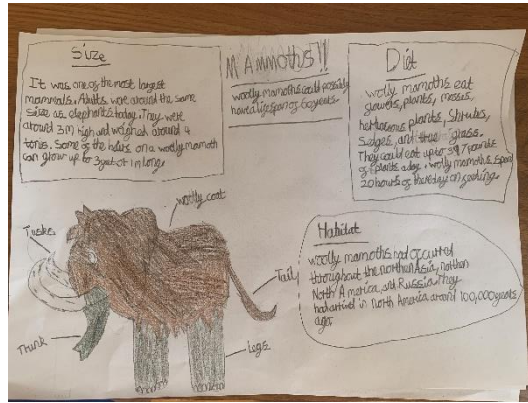 Size
It was one of the most largest
mammals. Adults were around the same
size as elephants today. They were
around 3M high and weighed around 4
tones. Some of the hairs on a woolly mamoth
can grow up to 3 feet or 1m long.
MAmmoths!!
woolly mamoths could possibly
have a life span of 60 years.
Diet
woolly mamoths eat
flowers, plants, moses,
herbaceous plants, Shrubs,
Sedges, and grass.
They could eat up to 397 pounds
of plants a day. woolly mamoths spend
20 hours of there day on
Habitat
woolly mamoths had occurred
throughout the northen Asia, northen
North America, and Russia. They
had arrived in north America around 100,000 years
ago.
woolly coat
Tuskes
Tail
Trunk
Legs